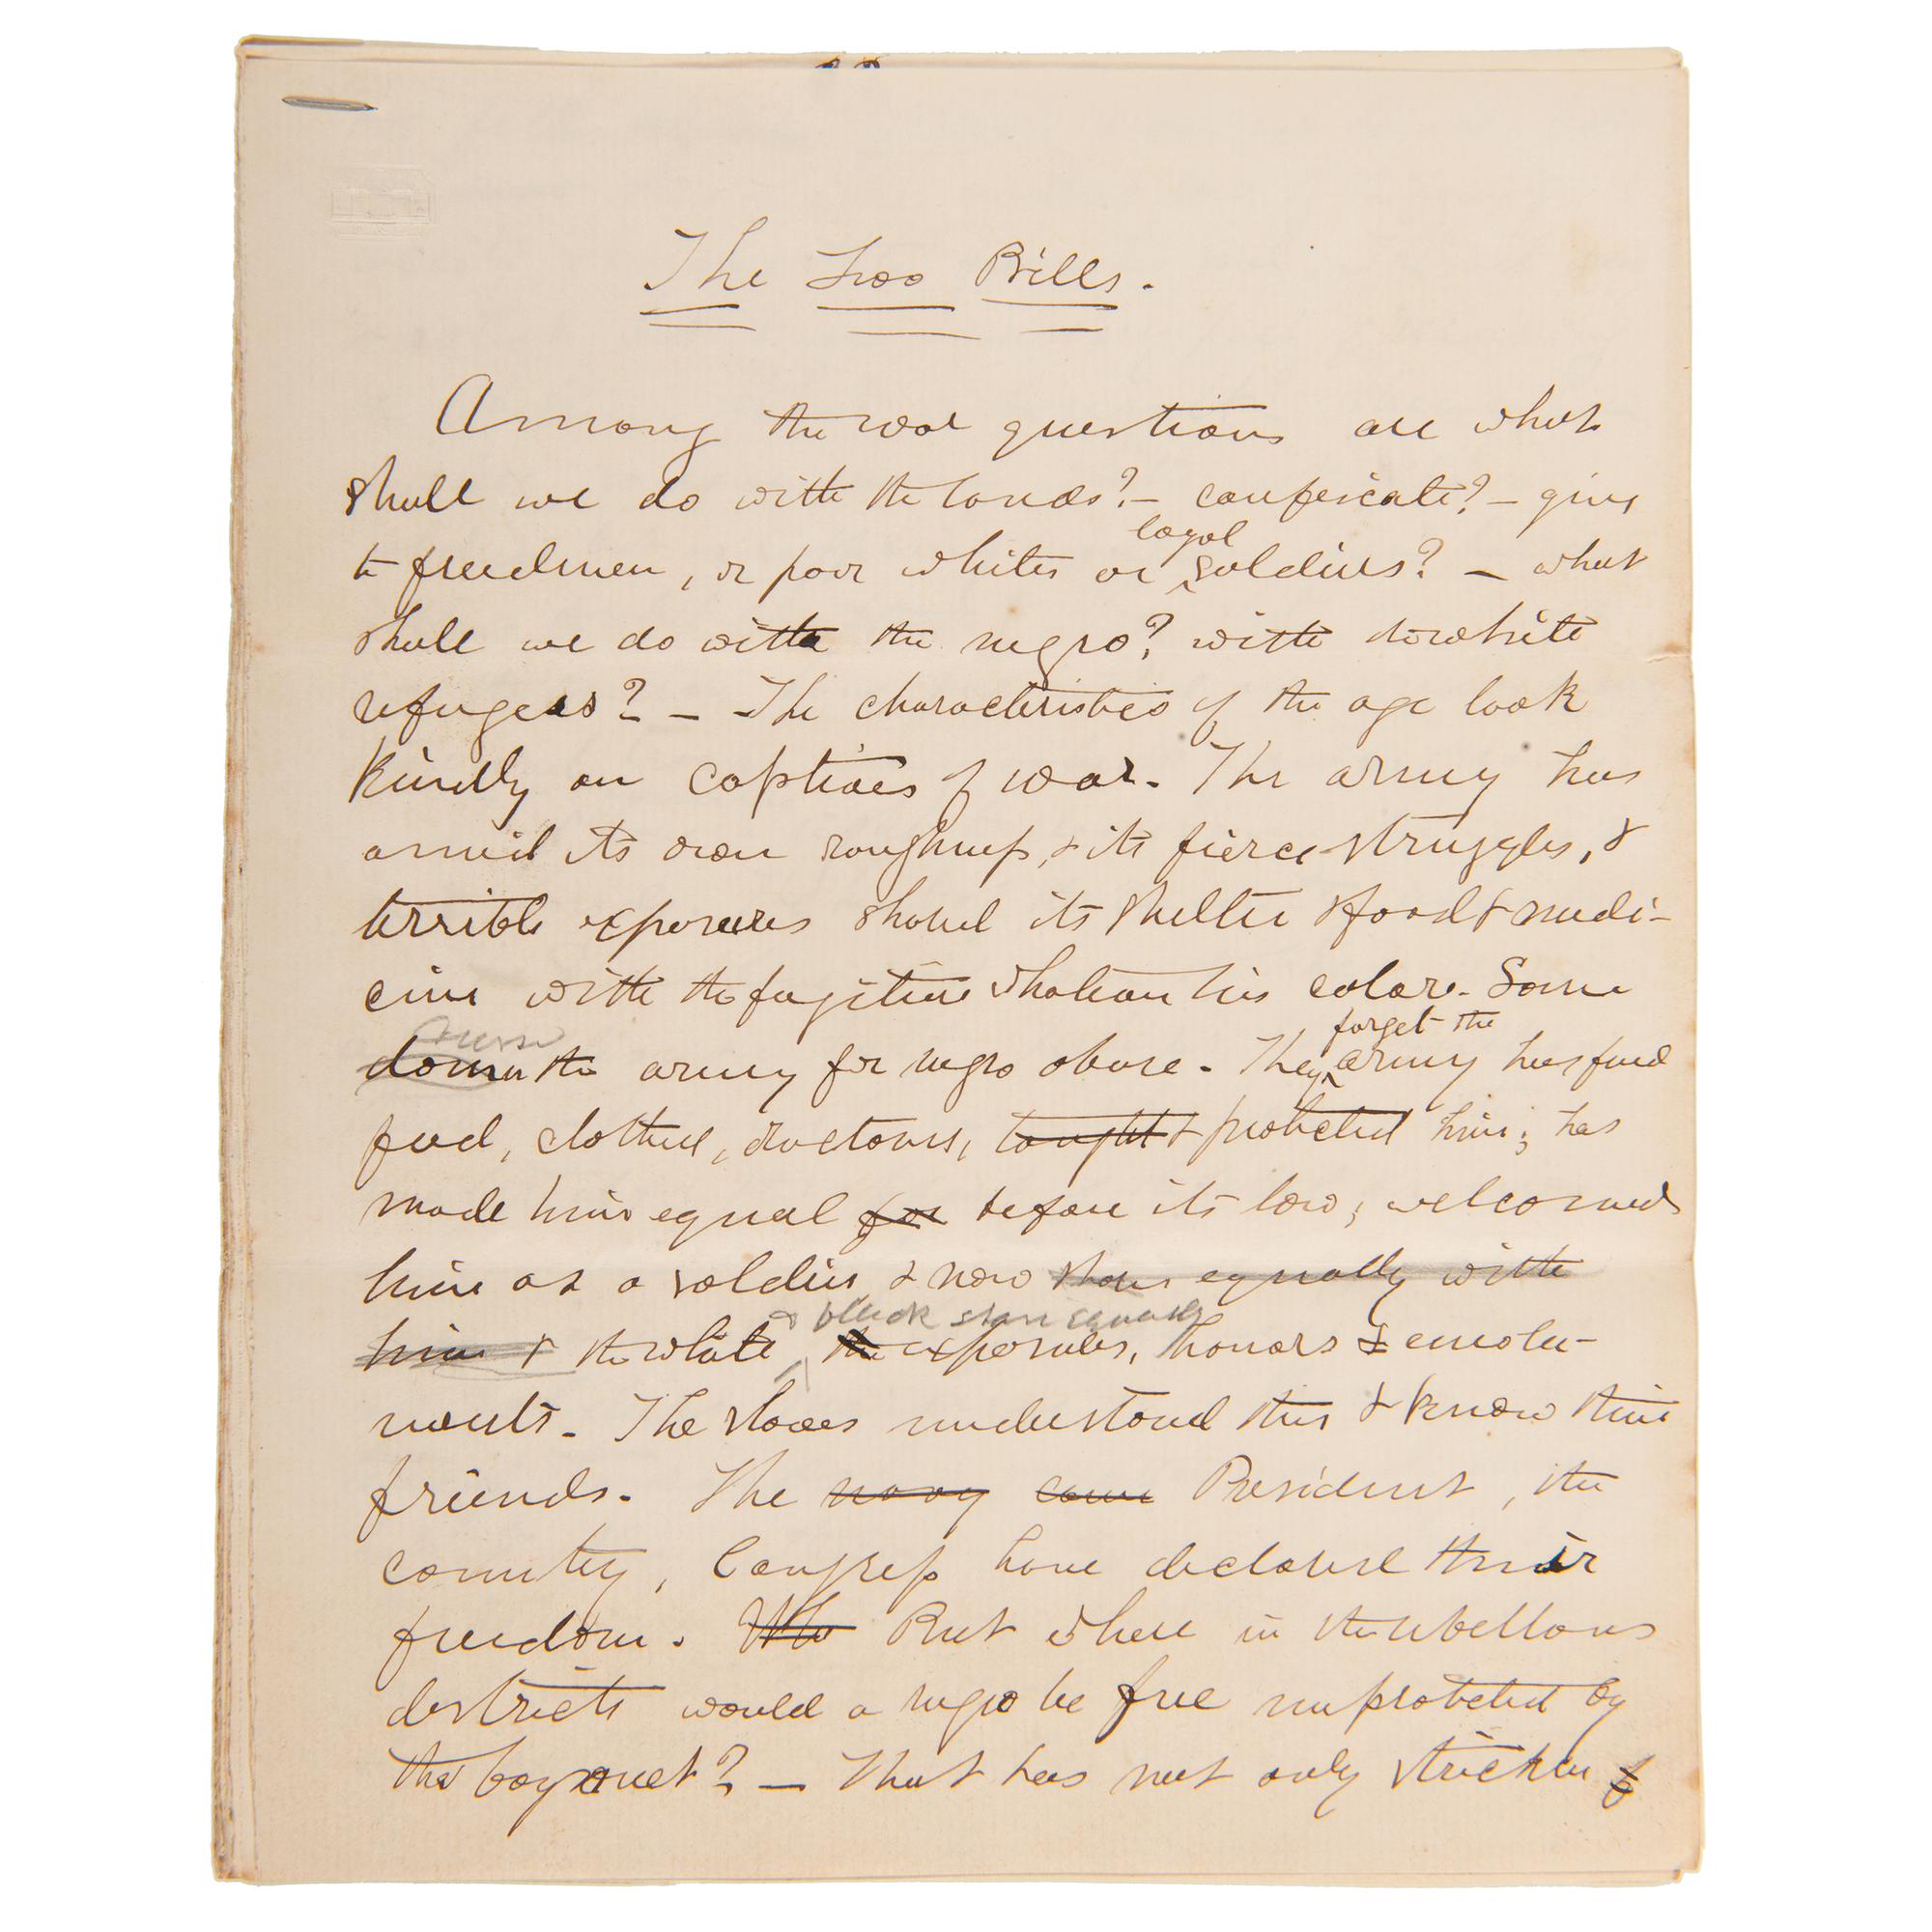 The Two Bills.
Among the war questions are what
shall we do with the lands? – confiscate? – give
loyal
to freedmen, or poor whites or soldiers? – what
shall we do with the negro? with the white
refugees? – The characteristics of the age look
kindly on captives of war. The army has
amid its own roughness, & its fierce struggles, &
terrible exposures shared its shelter & food & medi-
cine with the fugitive whatever his color. Some
forget the
the army for negro abuse. They army has fed
fed, clothed, doctored, taught & protected him; has
made him equal for before its law; welcomed
him as a soldier & now share equally with
& black share equally
him & the white the exposures, honors & emolu-
ments. The slaves understand this & know their
friends. The navy came President, the
country, Congress have declared their
freedom. Who But where in the rebellous
districts would a negro be free unprotected by
the bayonet? – That has not only stricken